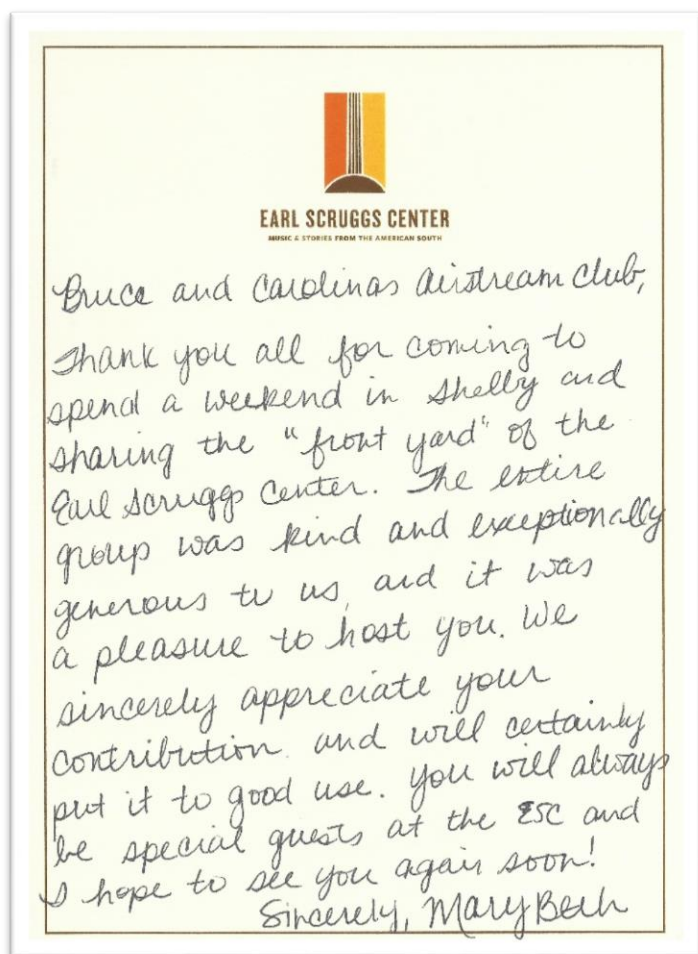 EARL SCRUGGS CENTER
MUSIC & STORIES FROM THE AMERICAN SOUTH
Bruce and Carolinas Airstream Club,
Thank you all for coming to
spend a weekend in Shelby and
sharing the "front yard" of the
Earl Scruggs Center. The entire
group was kind and exceptionally
generous to us, and it was
a pleasure to host you. We
sincerely appreciate your
contribution and will certainly
put it to good use. You will always
be special guests at the ESC and
I hope to see you again soon!
Sincerely, Mary Beth